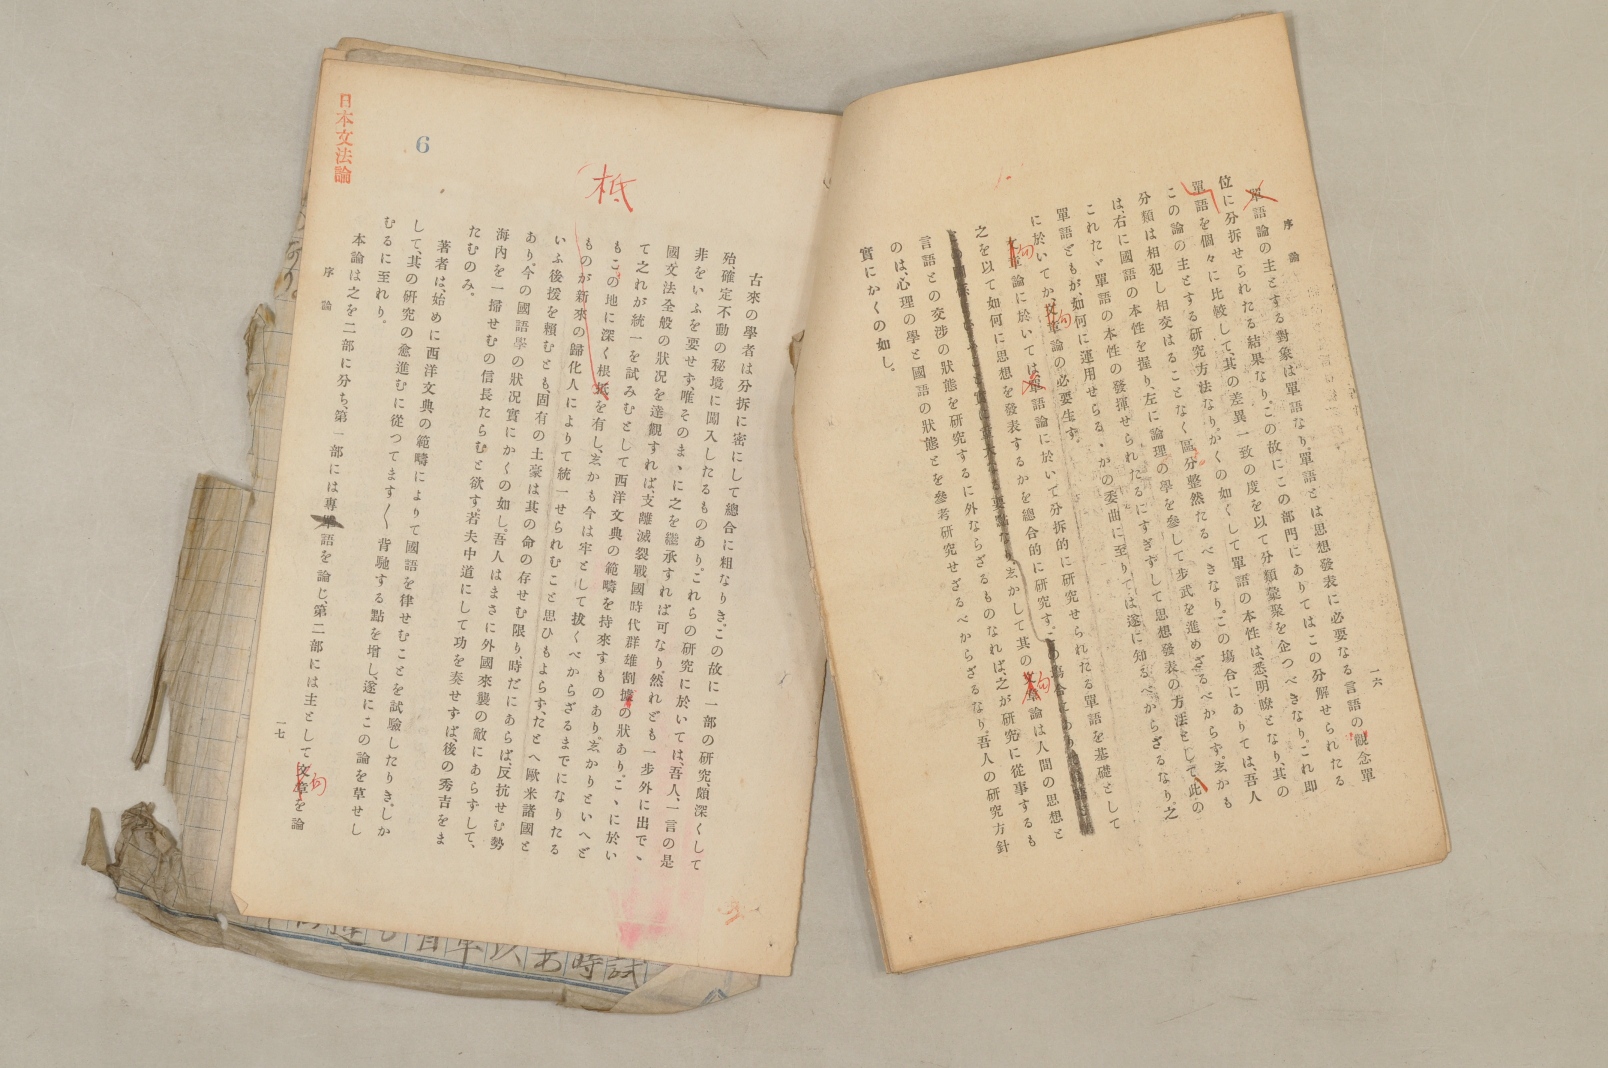 序論
一六
單語論の主とする對象は單語なり。單語とは思想發表に必要なる言語の觀念單
位に分拆せられたる結果なり。この故にこの部門にありてはこの分解せられたる
單語を個々に比較して、其の差異一致の度を以て分類彙聚を企つべきなり。これ即
この論の主とする研究方法なり。かくの如くして單語の本性は、悉、明瞭となり、其の
分類は相犯し相交はることなく區分整然たるべきなり。この塲合にありては、吾人
は、右に國語の本性を握り、左に論理の學を參して步武を進めざるべからず。志かも
これたゞ單語の本性の發揮せられたるにすぎずして思想發表の方法として、此の
單語どもが、如何に運用せらるゝかの委曲に至りては遂に知るべからざるなり。之
に於いてか、文章論の必要生ず。
句
句
文章論に於いては、單語論に於いて分拆的に研究せられたる單語を基礎として
之を以て如何に思想を發表するかを總合的に研究す。
志かして其の文章論は人間の思想と
句
言語との交涉の狀態を研究するに外ならざるものなれば、之が研究に從事するも
のは、心理の學と國語の狀態とを參考研究せざるべからざるなり。吾人の研究方針
實にかくの如し。
日本文法論
6
柢
古來の學者は分拆に密にして總合に粗なりき。この故に一部の研究、頗深くして
殆、確定不動の秘境に闖入したるものあり。これらの研究に於いては、吾人、一言の是
非をいふを要せず、唯そのまゝに之を繼承すれば可なり。然れども一步外に出でゝ
國文法全般の狀况を達觀すれば、支離滅裂戰國時代群雄割據の狀あり。こゝに於い
て之れが統一を試みむとして西洋文典の範疇を持來すものあり。志かりといへど
もこの地に深く根柢を有し、志かも今は牢として拔くべからざるまでになりたる
ものが新來の歸化人によりて統一せられむこと思ひもよらず、たとへ歐米諸國と
いふ後援を賴むとも、固有の土豪は其の命の存せむ限り、時だにあらば、反抗せむ勢
あり。今の國語學の狀况實にかくの如し。吾人はまさに外國來襲の敵にあらずして、
海內を一掃せむの信長たらむと欲す。若、夫中道にして功を奏せずば、後の秀吉をま
たむのみ。
著者は、始めに西洋文典の範疇によりて國語を律せむことを試驗したりき。しか
して、其の硏究の愈進むに從つてます〱背馳する點を增し、遂にこの論を草せし
むるに至れり。
本論は之を二部に分ち、第一部には專單語を論じ、第二部には主として文章を論
句
序論
一七